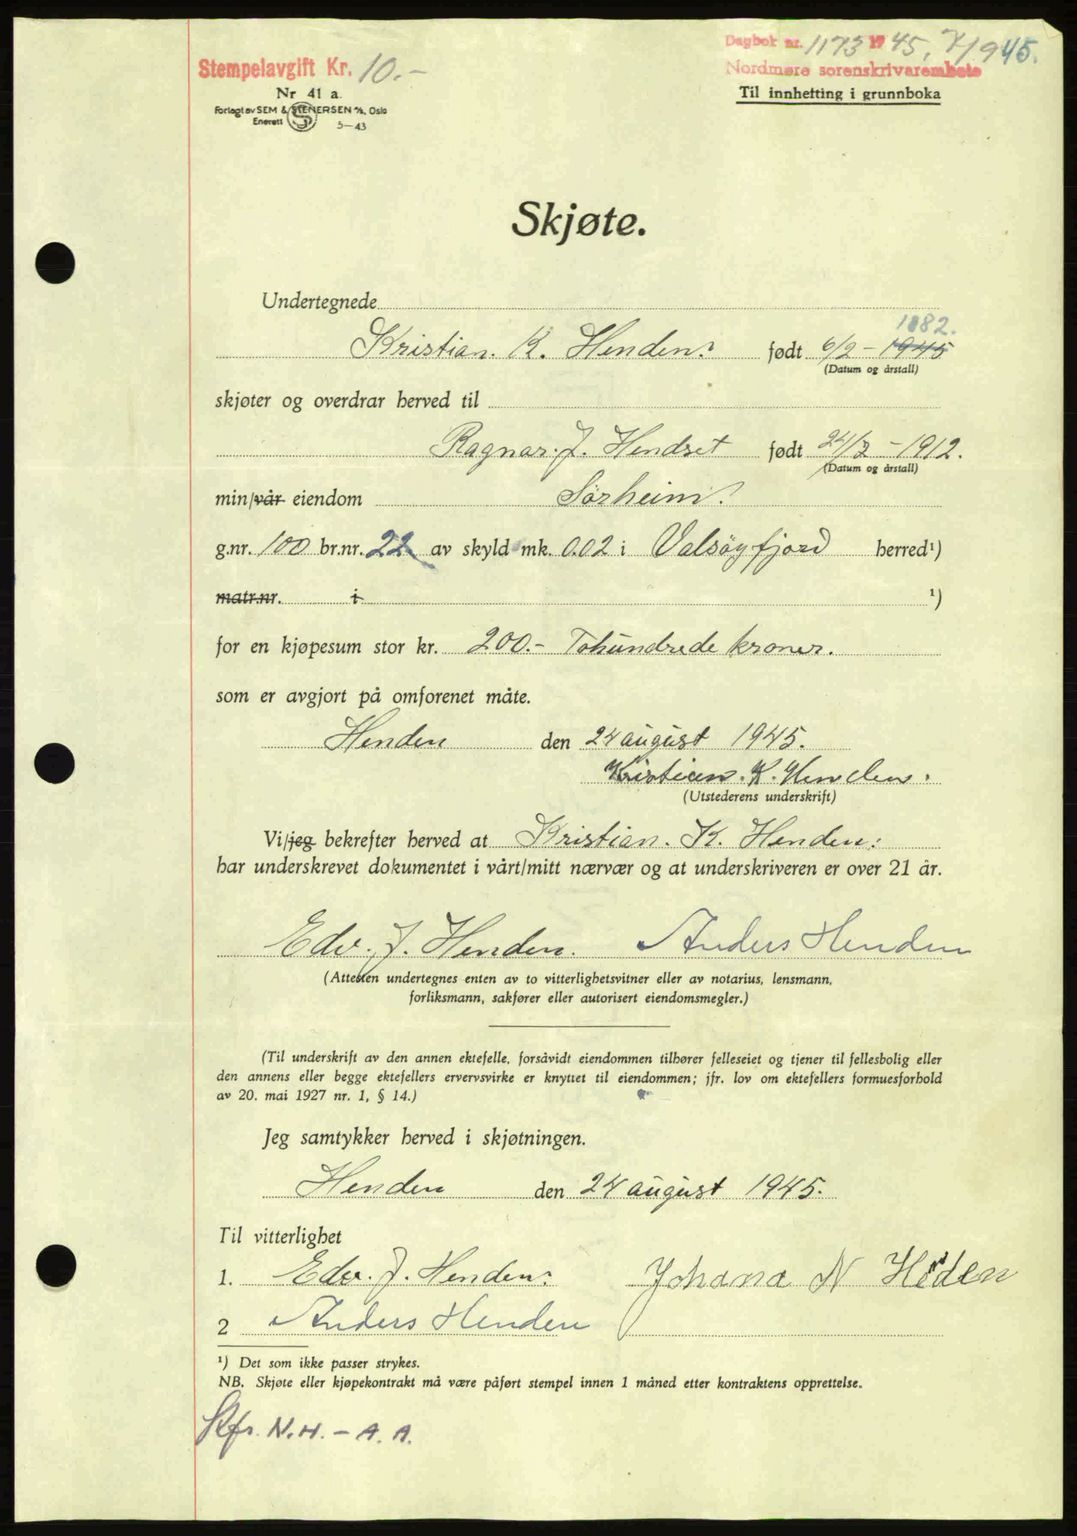 Stempelavgift Kr. 10.-
Nr 41 a.
Forlagt av SEM & STENERSEN A/S, Oslo
Enerett 5-43
Dagbok nr. 1173 1945, 7/9 45.
Nordmøre sorenskriverembete
Til innhefting i grunnboka
Skjøte.
Undertegnede
1882.
Kristian. K. Henden. født 6/2 - 1945
(Datum og årstall)
skjøter og overdrar herved til
Ragnar. J. Hendset født 24/2 - 1912.
(Datum og årstall)
min/vår eiendom Sørheim.
g.nr. 100 br.nr. 22 av skyld mk. 0.02 i Valsøyfjord herred¹)
matr.nr. i ¹)
for en kjøpesum stor kr. 200.- Tohundrede kroner.
som er avgjort på omforenet måte.
Henden den 24 august 1945.
Kristian. K. Henden.
(Utstederens underskrift)
Vi/jeg bekrefter herved at Kristian. K. Henden.
har underskrevet dokumentet i vårt/mitt nærvær og at underskriveren er over 21 år.
Edv. J. Henden. Anders Henden
(Attesten undertegnes enten av to vitterlighetsvitner eller av notarius, lensmann,
forliksmann, sakfører eller autorisert eiendomsmegler.)
(Til underskrift av den annen ektefelle, forsåvidt eiendommen tilhører felleseiet og tjener til fellesbolig eller
den annens eller begge ektefellers ervervsvirke er knyttet til eiendommen; jfr. lov om ektefellers formuesforhold
av 20. mai 1927 nr. 1, § 14.)
Jeg samtykker herved i skjøtningen.
Henden den 24 august 1945.
Til vitterlighet
1. Edv. J. Henden. Johana N Henden
2 Anders Henden
¹) Det som ikke passer strykes.
NB. Skjøte eller kjøpekontrakt må være påført stempel innen 1 måned etter kontraktens opprettelse.
N.H. - A.A.